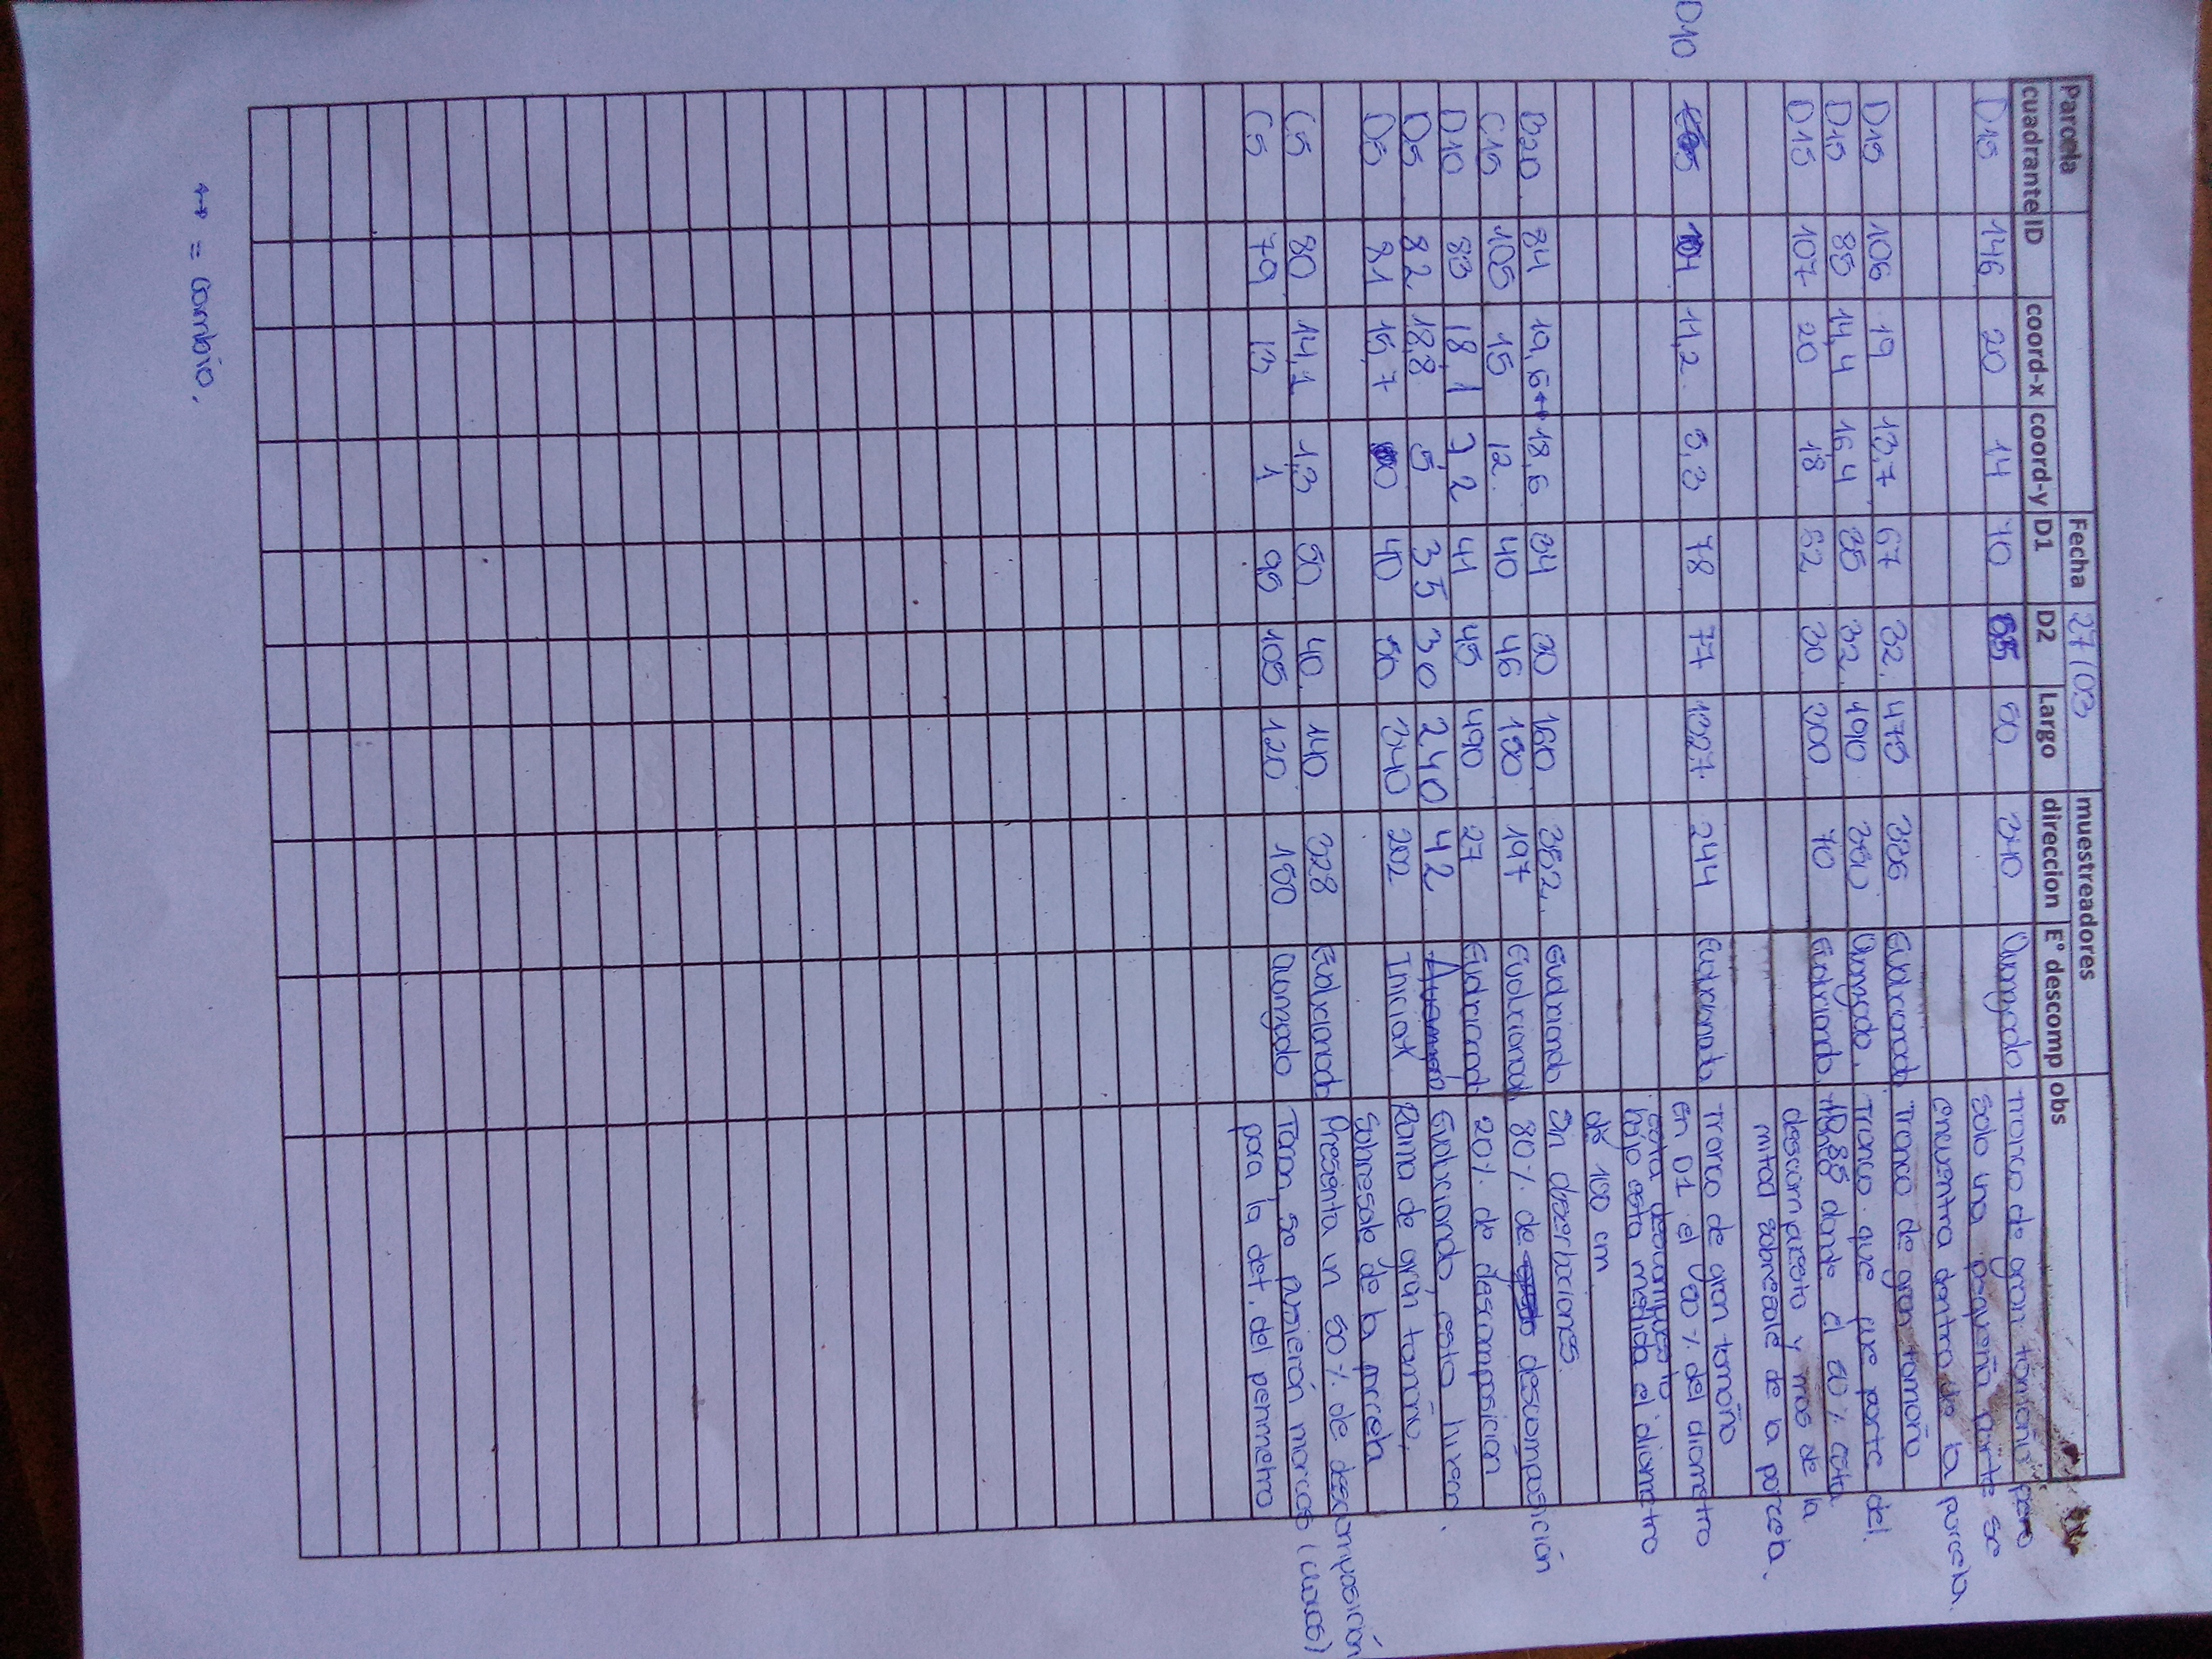 Parcela Fecha 27/03 muestreadores
cuadrante ID coord-x coord-y D1 D2 Largo direccion E° descomp obs
D15 146 20 14 70 65 50 340 Avanzado Tronco de gran tamaño pero
solo una pequeña parte se
encuentra dentro de la parcela.
D15 106 19 13,7 67 32. 475 336 Evolucionado Tronco de gran tamaño
D15 85 14,4 16,4 35 32. 190 350 Avanzado. Tronco que fue parte del.
D15 107 20 18 52 30 300 70 Evoluciondo ID 85 donde el 50% esta
descompuesto y mas de la
mitad sobresale de la parcela.
D10 104 11,2 5,3 78 77 1327. 244 Evolucionado Tronco de gran tamaño
en D1 el 50% del diametro
esta descompuesto.
bajo esta medida el diametro
de 100 cm
B20 84 19,6 ↔ 18,6 34 30 160 352. Evoluciondo Sin obserbaciones.
C15 105 15 12. 40 46 150 197 Evolucionad. 80% de descomposición
D10 83 18,1 7,2 41 45 490 27 Evolucionad. 20% de descomposición
D5 82 18,8 5 35 30 240 42 Avanzado Evoluciondo, esta hueco.
D5 81 15,7 0 40 50 340 202 Inicial Rama de gran tamaño,
sobresale de la parcela
C5 80 14,1 1,3 50 40. 140 328 Evolucionado Presenta un 50% de descomposición
C5 79 13 1 95 105 120 150 avanzado Tocon, se pusieron marcas (clavos)
para la det. del perimetro
↔ = cambio.